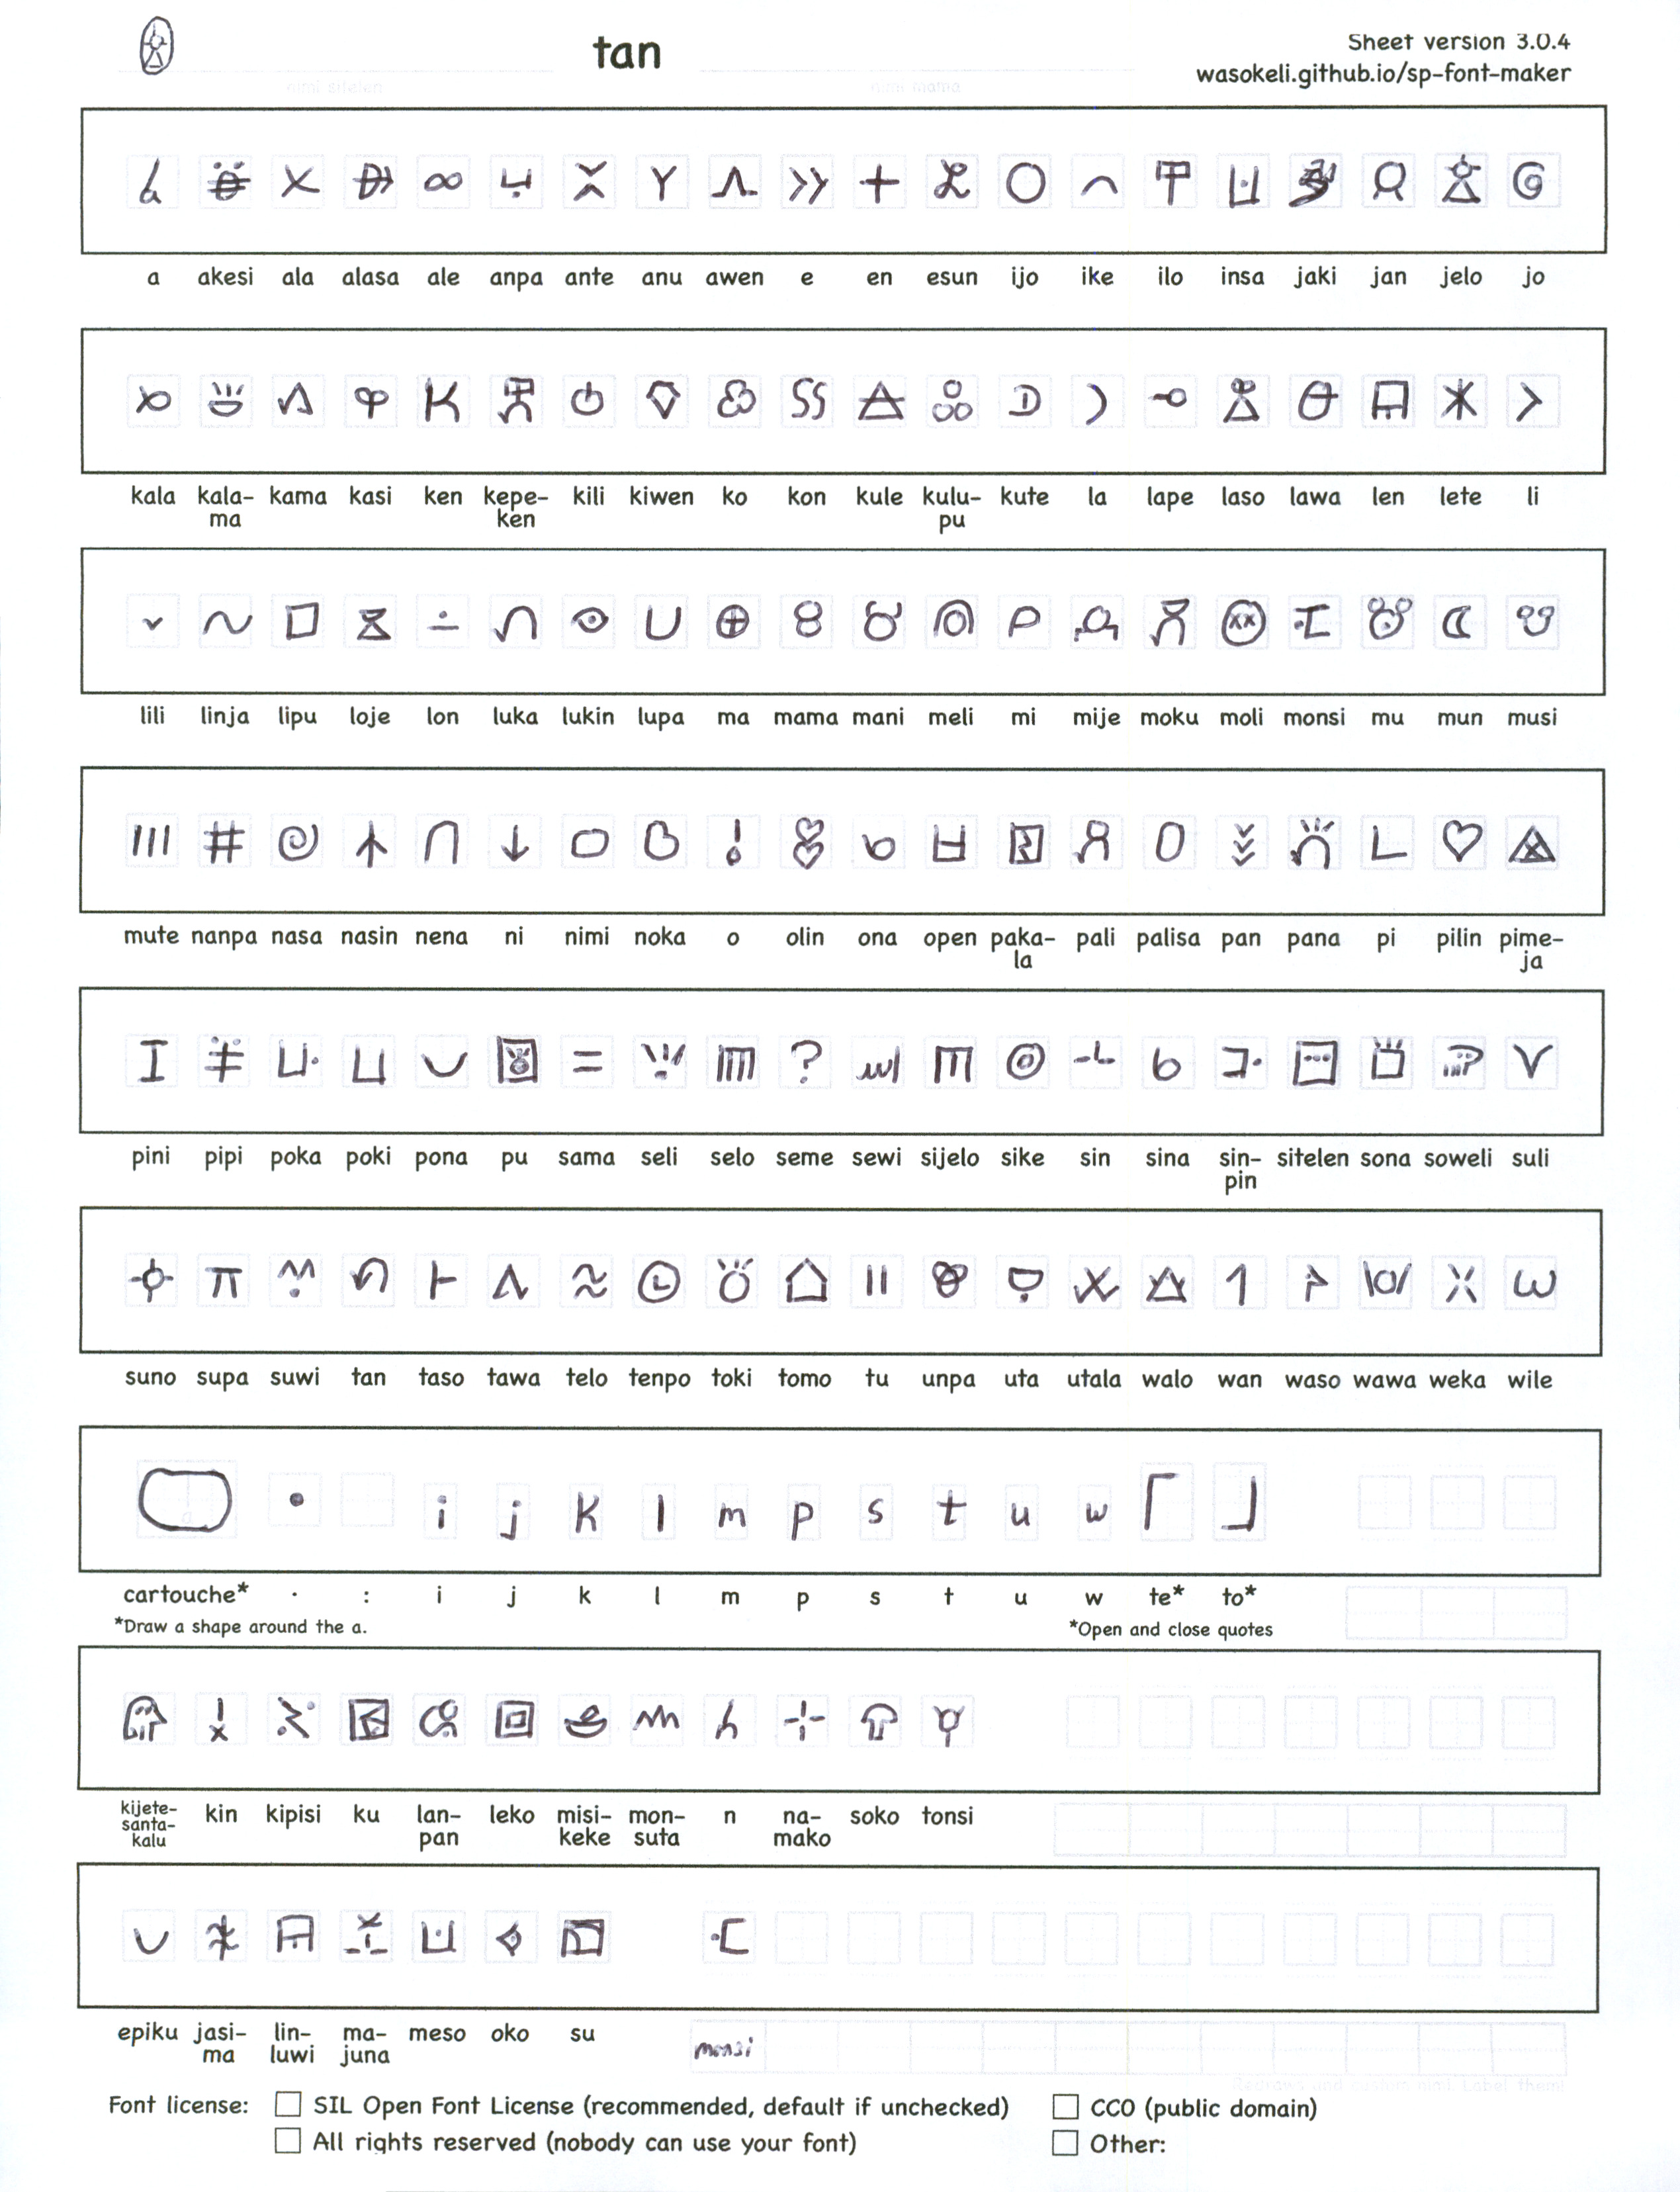 tan
Sheet version 3.0.4
wasokeli.github.io/sp-font-maker
nimi sitelen
nimi mama
a akesi ala alasa ale anpa ante anu awen e en esun ijo ike ilo insa jaki jan jelo jo
kala kala- kama kasi ken kepe- kili kiwen ko kon kule kulu- kute la lape laso lawa len lete li
ma ken pu
lili linja lipu loje lon luka lukin lupa ma mama mani meli mi mije moku moli monsi mu mun musi
mute nanpa nasa nasin nena ni nimi noka o olin ona open paka- pali palisa pan pana pi pilin pime-
la ja
pini pipi poka poki pona pu sama seli selo seme sewi sijelo sike sin sina sin- sitelen sona soweli suli
pin
suno supa suwi tan taso tawa telo tenpo toki tomo tu unpa uta utala walo wan waso wawa weka wile
i j k l m p s t u w
cartouche* · : i j k l m p s t u w te* to*
*Draw a shape around the a.
*Open and close quotes
kijete- kin kipisi ku lan- leko misi- mon- n na- soko tonsi
santa- pan keke suta mako
kalu
epiku jasi- lin- ma- meso oko su
ma luwi juna
monsi
Redraws and custom nimi. Label them!
Font license:
SIL Open Font License (recommended, default if unchecked)
CC0 (public domain)
All rights reserved (nobody can use your font)
Other: